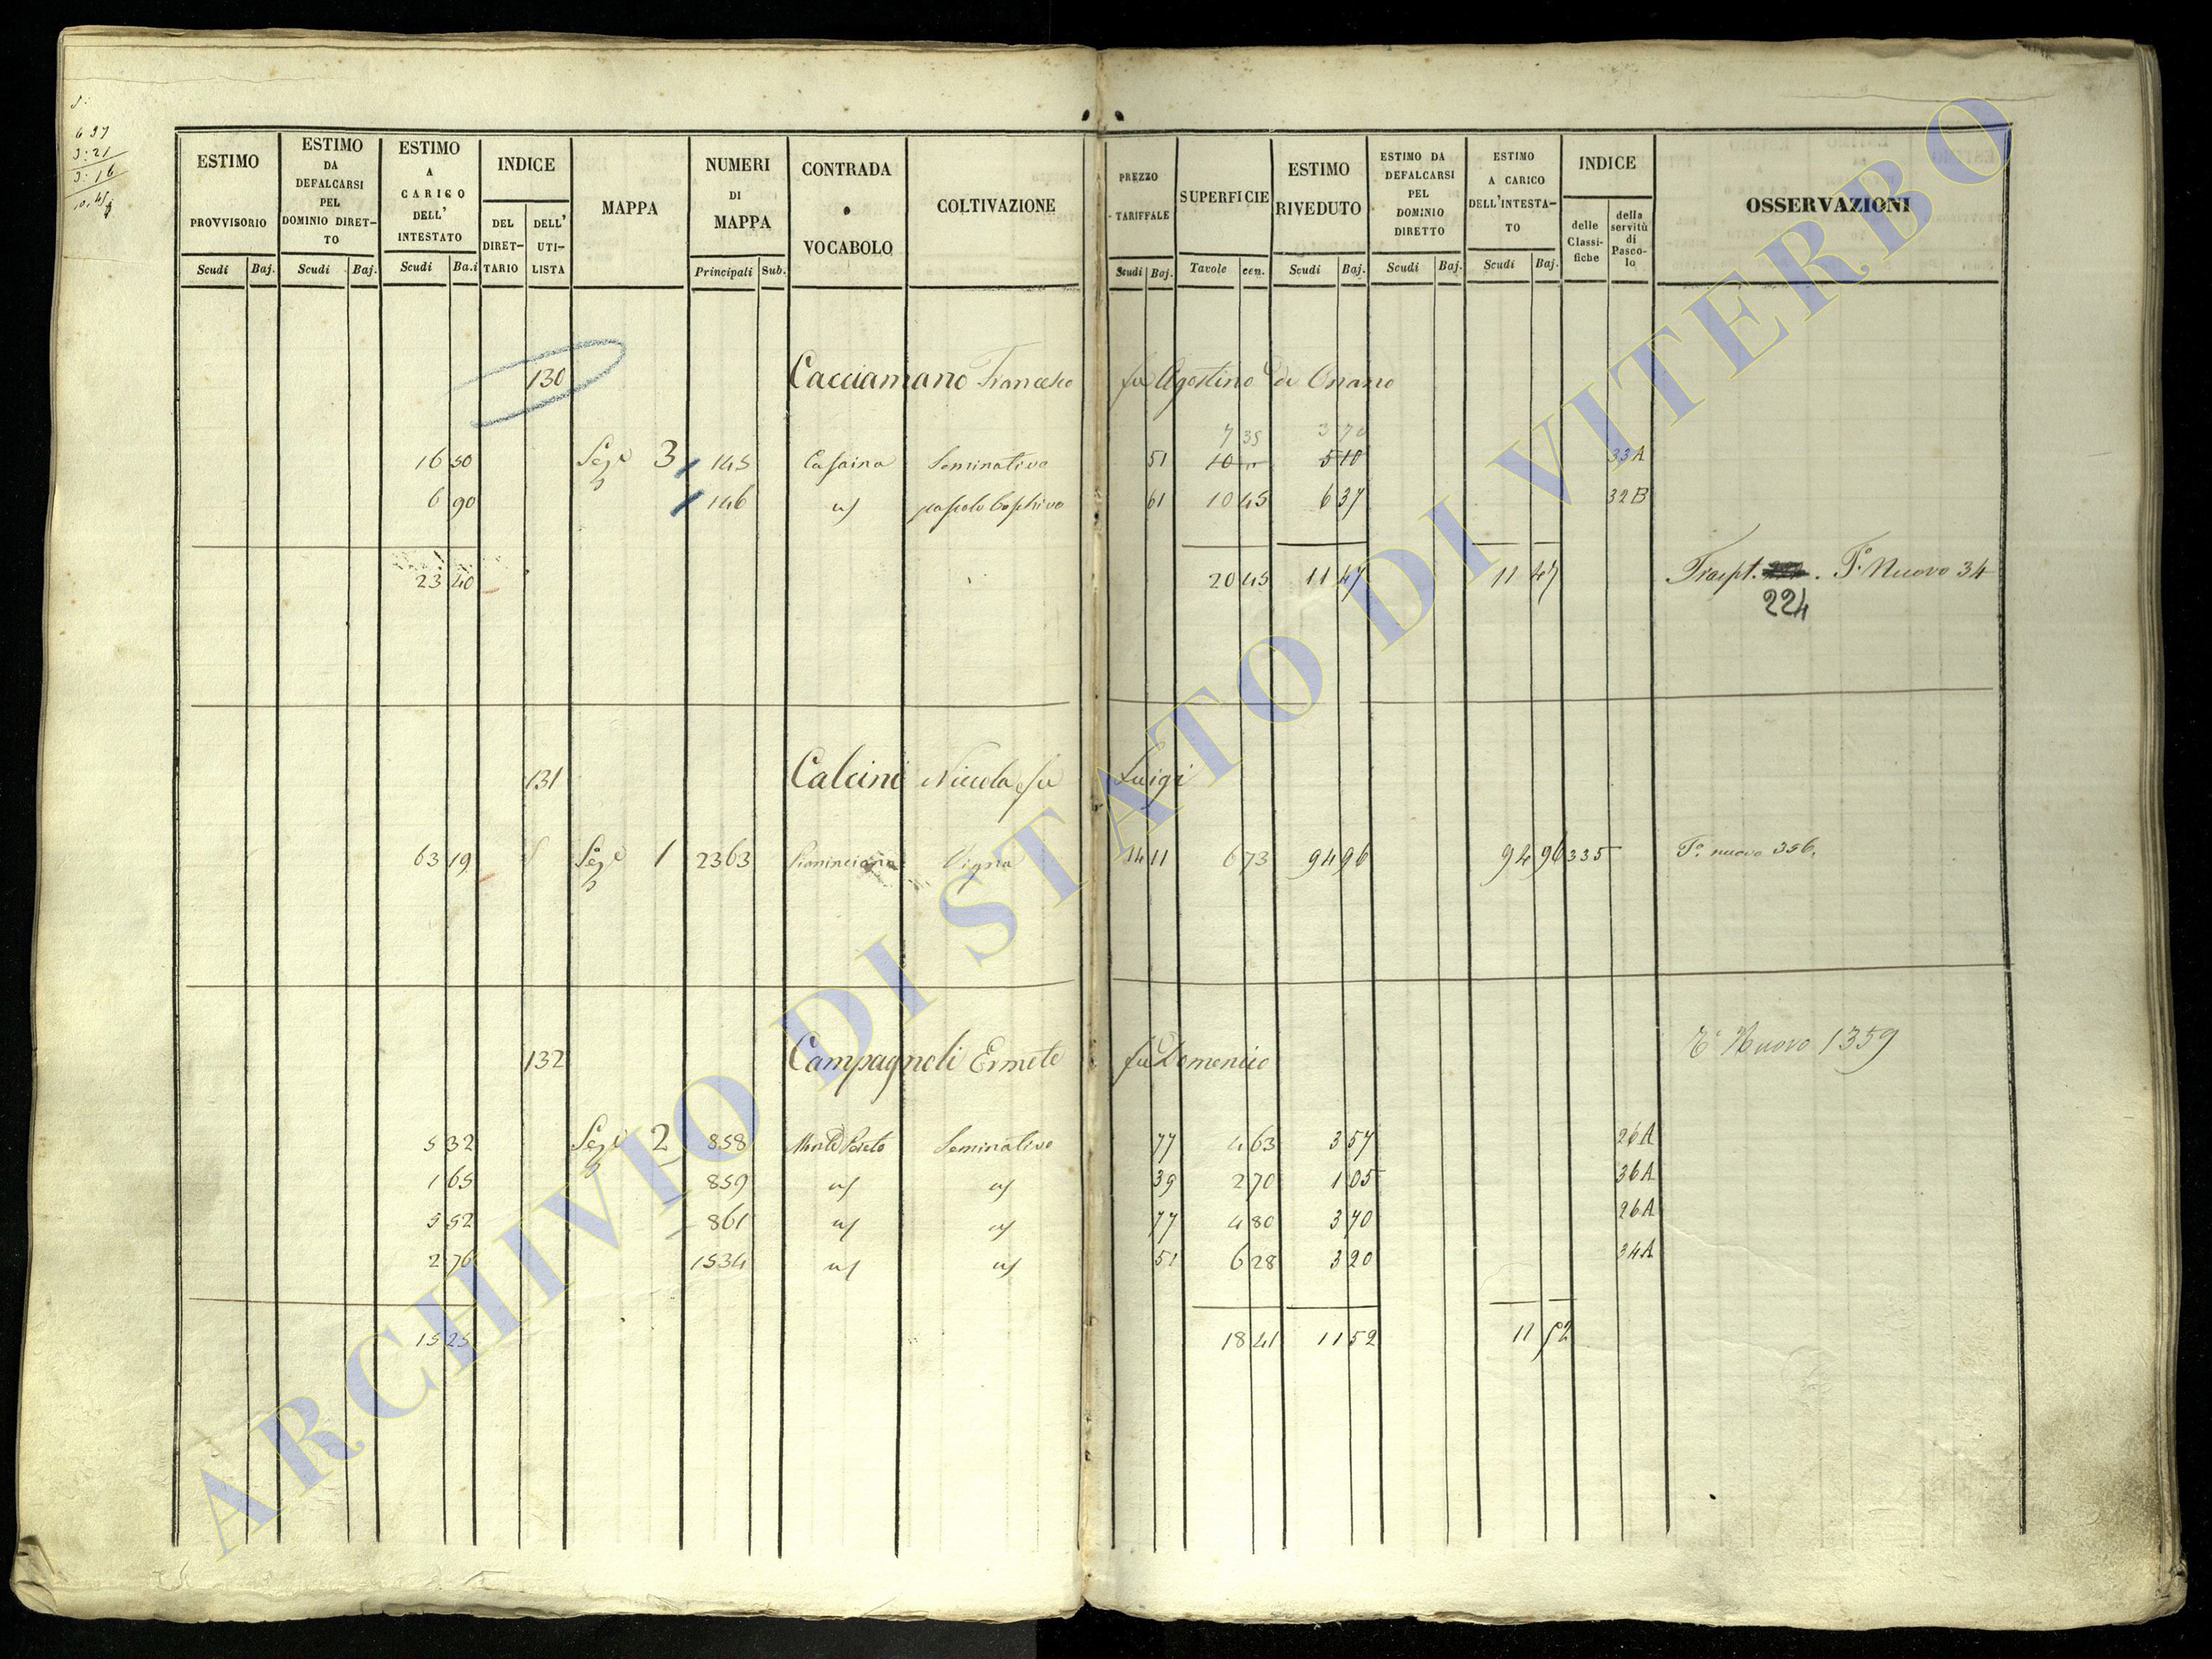 S:
6 37
3:21
3:16
10.45
ESTIMO PROVVISORIO
Scudi Baj.
ESTIMO DA DEFALCARSI PEL DOMINIO DIRET-TO
Scudi Baj.
ESTIMO A CARICO DELL' INTESTATO
Scudi Ba.i
INDICE
DEL DIRET-TARIO
DELL' UTI-LISTA
MAPPA
NUMERI DI MAPPA
Principali Sub.
CONTRADA o VOCABOLO
COLTIVAZIONE
PREZZO TARIFFALE
Scudi Baj.
SUPERFICIE
Tavole cen.
ESTIMO RIVEDUTO
Scudi Baj.
ESTIMO DA DEFALCARSI PEL DOMINIO DIRETTO
Scudi Baj.
ESTIMO A CARICO DELL'INTESTA-TO
Scudi Baj.
INDICE
delle Classi-fiche
della servitù di Pasco-lo
OSSERVAZIONI
130 Cacciamano Francesco fu Agostino da Onano
7 35 3 70
16 50 Sez.e 3 145 Cassaina Seminativo 51 10 " 5 10 33A
6 90 146 " pascolo cespugliato 61 10 45 6 37 32B
23 40 20 45 11 47 11 47 Traspt. . T.o Nuovo 34
224
131 Calcini Niccola fu Luigi
63 19 Sez.e 1 2363 Vigna 14 11 6 73 94 96 94 96 335 T.o nuovo 356.
132 Campagnoli Ermete fu Domenico T.o Nuovo 1359
5 32 Sez.e 2 858 Seminativo 77 4 63 3 57 26A
1 65 859 " " 39 2 70 1 05 36A
5 52 861 " " 77 4 80 3 70 26A
2 76 1534 " " 51 6 28 3 20 34A
15 25 18 41 11 52 11 52
ARCHIVIO DI STATO DI VITERBO